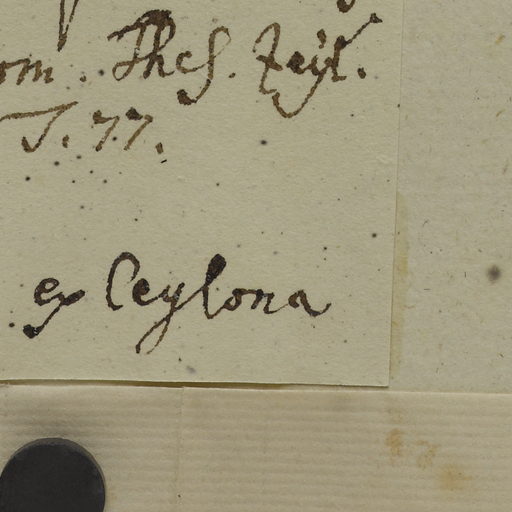 om. Thes. Zeyl.
T. 77.
ex Ceylona